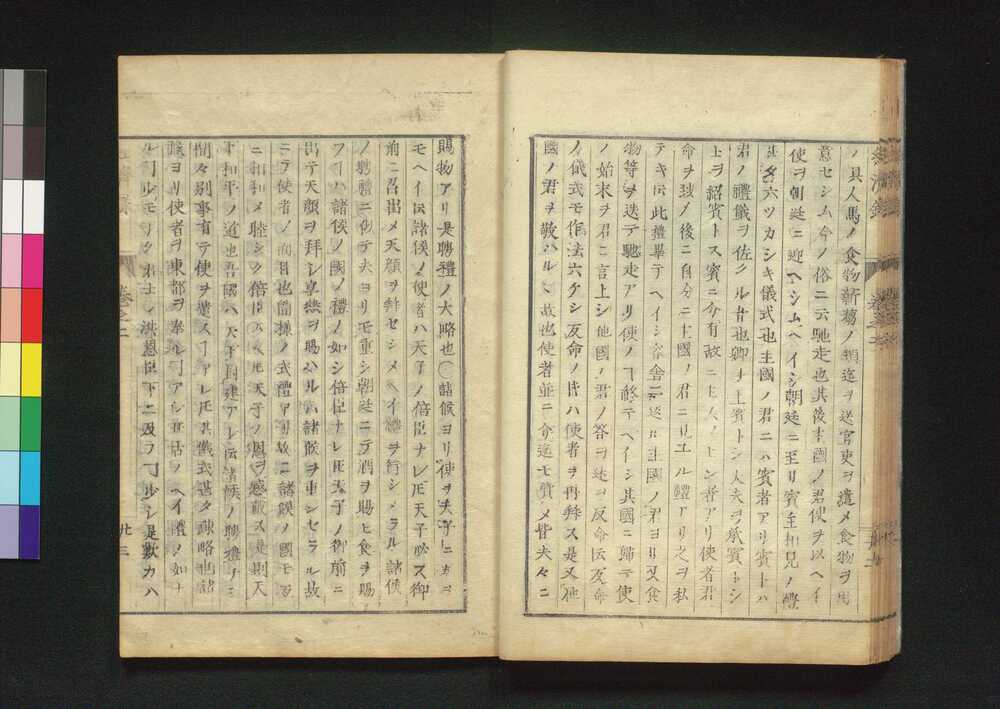 ノ具人馬ノ食物薪芻ノ類迄ヲ送官吏ヲ遣メ食物ヲ用
意セシム今ノ俗ニ云馳走也其後主國ノ君使ヲ以ヘイ
使ヲ朝廷ニ迎ヘシムヘイシ朝廷ニ至リ賓主相見ノ禮
其名六ツカシキ儀式也主國ノ君ニハ賓者アリ賓トハ
君ノ禮儀ヲ佐クル者也卿ヲ上賓トシ大夫ヲ承賓トシ
士ヲ紹賓トス賓ニ今有故ニ上人ノヒン者アリ使者君
命ヲ述ノ後ニ自分ニ主國ノ君ニ見エル禮アリ之ヲ私
テキト云此禮畢テヘイシ客舎ニ返ル主國ノ君ヨリ又食
物等ヲ送テ馳走アリ使ノ丁終テヘイシ其國ニ歸テ使
ノ始末ヲ君ニ言上シ他國ノ君ノ答ヲ述ヲ反命ト云反命
ノ儀式モ作法六ケシ反命ノ時ハ使者ヲ再拜ス是又他
國ノ君ヲ敬ハルヽ故也使者並ニ介迄モ賞メ皆夫々ニ
賜物アリ是聘禮ノ大略也〇諸侯ヨリ使ヲ天子ニ
モヘイト云諸侯ノ使者ハ天子ノ倍臣ナレ𪜈天子必ス御
前ニ召出メ天顔ヲ拜セシメヘイ禮ヲ行シメラル諸侯
ノ聘禮ニ化テ夫ヨリモ重シ朝廷ニテ酒ヲ賜ヒ食ヲ賜
フ丁ハ諸侯ノ國ノ禮ノ如シ倍臣ナレ𪜈天子ノ御前ニ
出テ天顔ヲ拜シ享燕ヲ賜ハルハ諸侯ヲ重シセラル故
ニテ使者ノ面目也箇樣ノ式禮アル故ニ諸侯ノ國モ互
ニ相和メ睦シク倍臣マテモ天子ノ恩ヲ感戴ス是則天
下和平ノ道也吾國ハ天下封建アレ𪜈諸侯ノ聘禮ナシ
間々別事有テ使ヲ遣ス丁アレ𪜈其儀式甚タ疎略也諸
侯ヨリ使者ヲ東都ヲ奉ル丁アレ𪜈古ノヘイ禮ノ如ナ
ル丁ルモナク
洪恩臣下ニ及フ丁少シ是歎カハ
卷之二
廿三